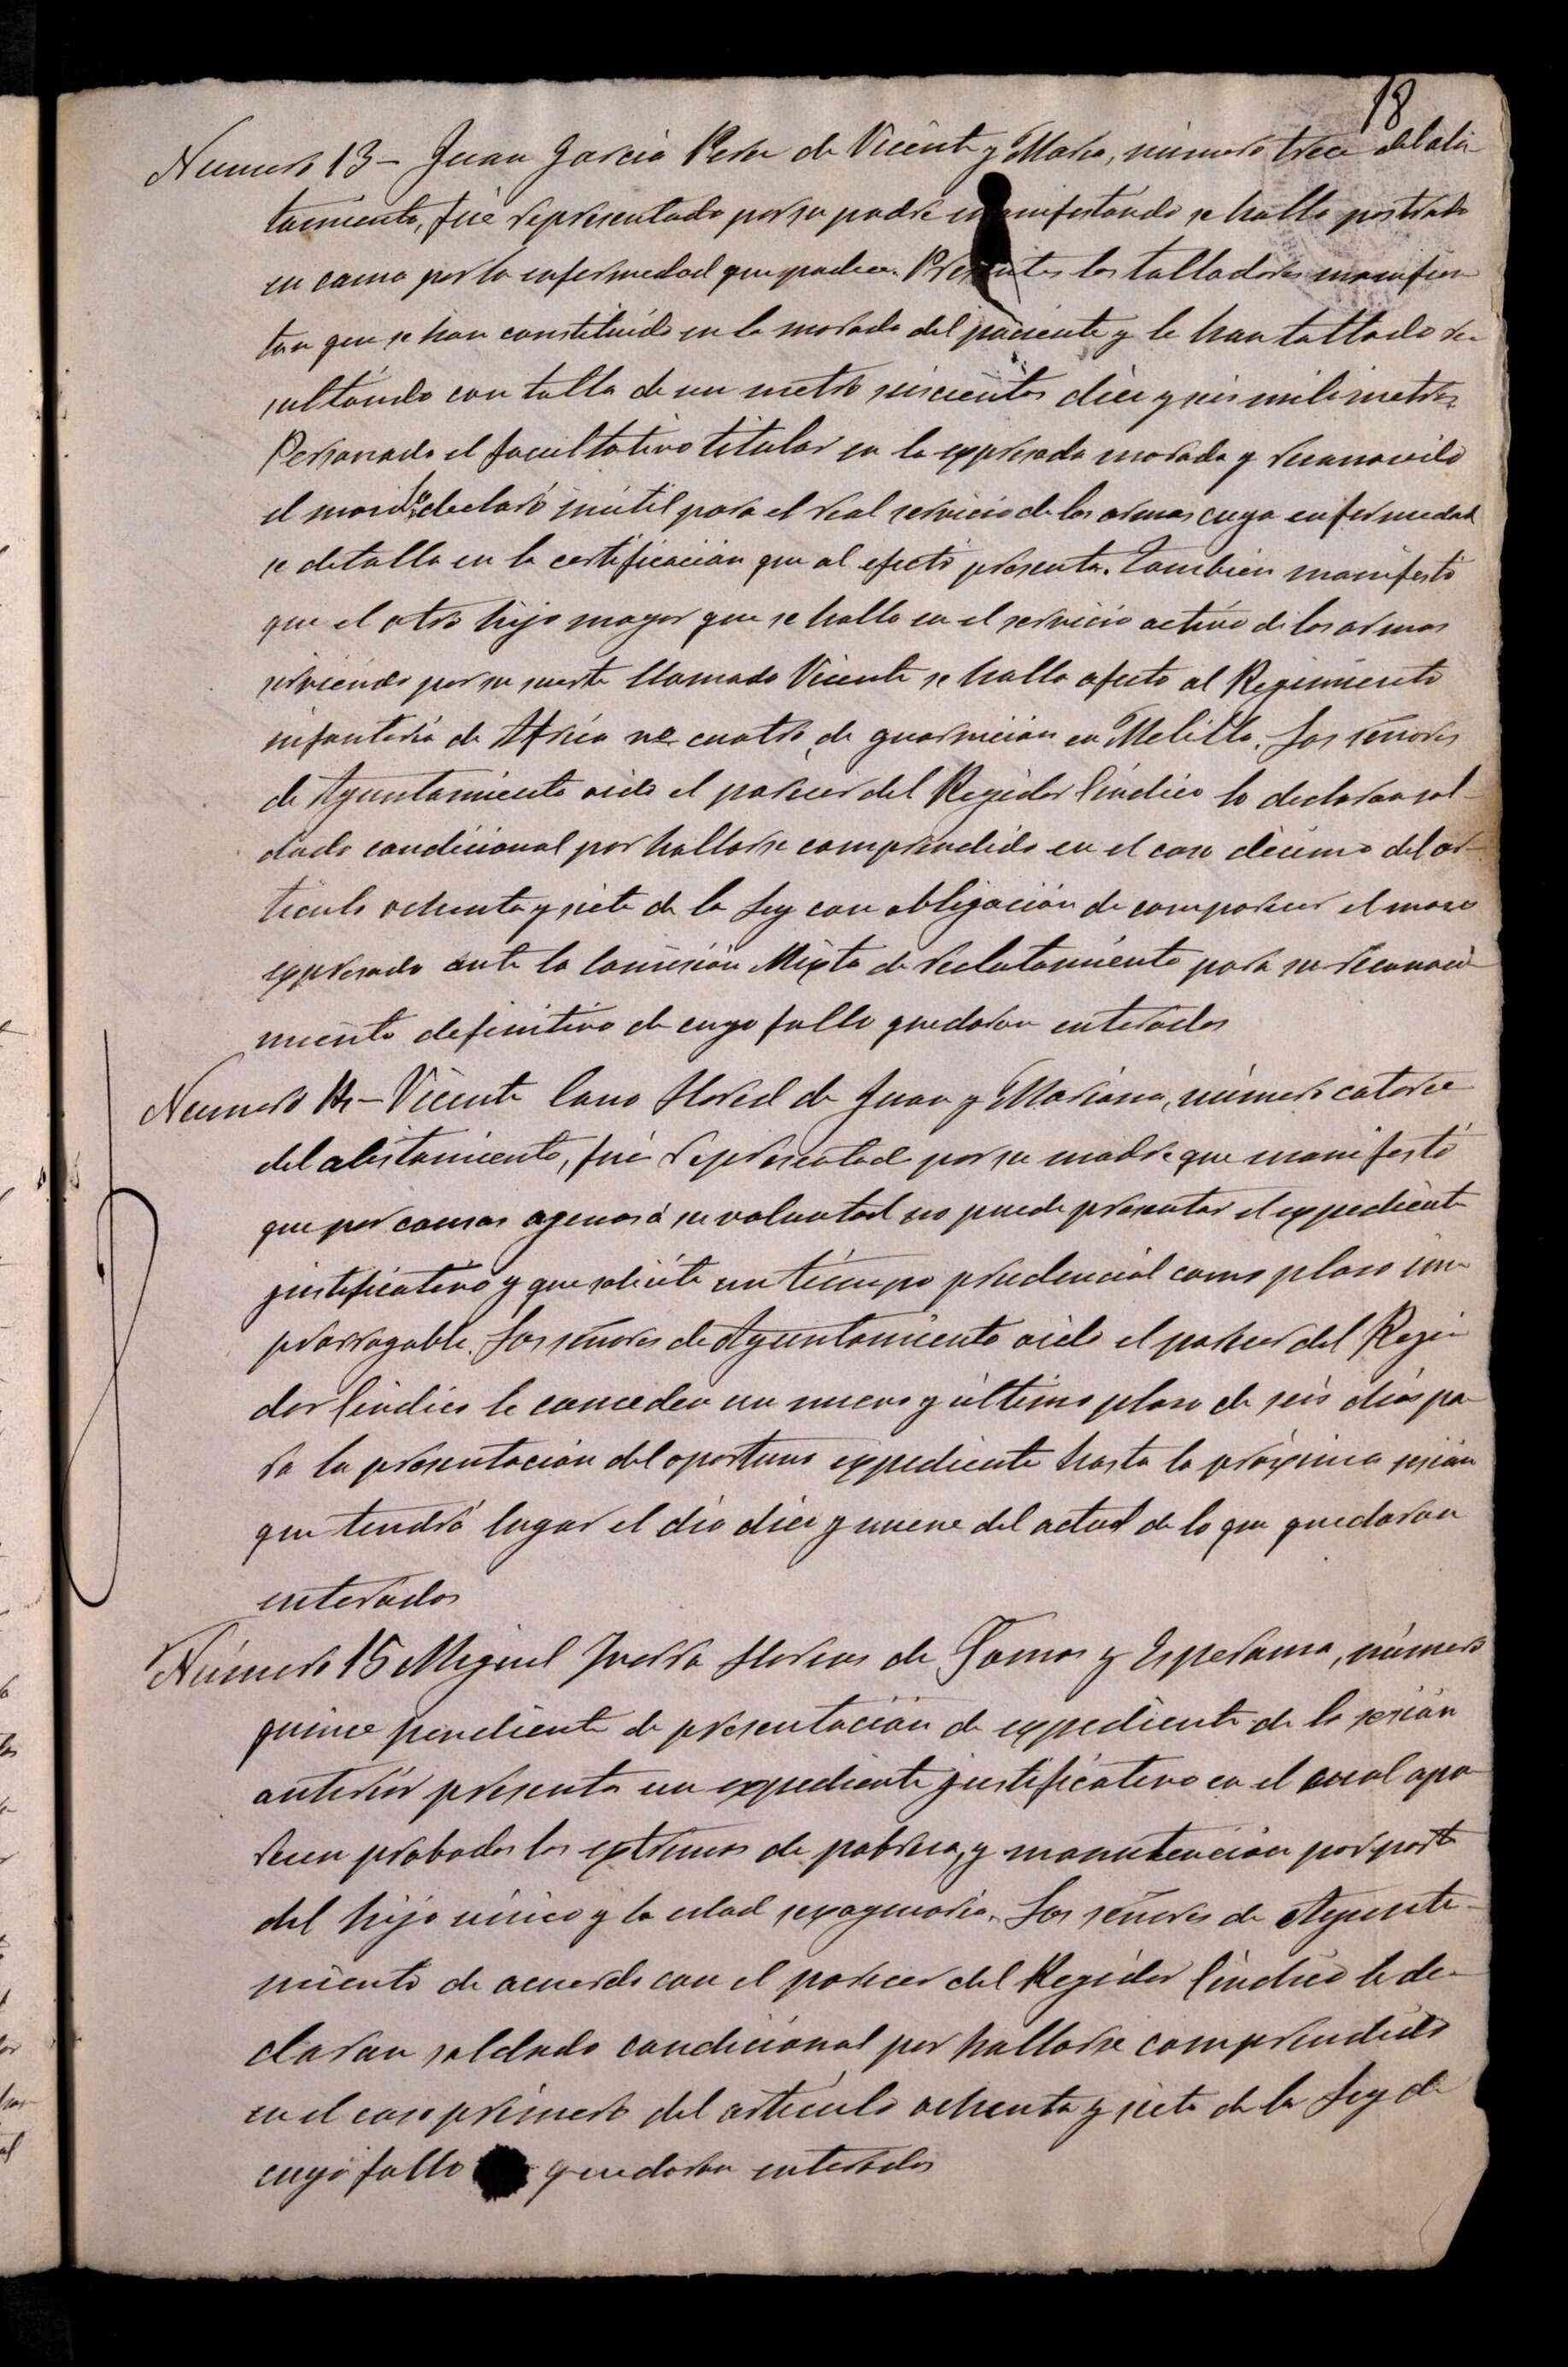 18
Número 13- Juan García Perez de Vicente y Maria, número trece del alis-
tamiento, fué representado por su padre manifestando se halla postrado
en cama por la enfermedad que padece. Presentes los talladores manifies-
tan que se han constituido en la morada del paciente y le han tallado re-
sultando con talla de un metro seiscientos diez y seis milimetros.
Personado el facultativo titular en la expresada morada y reconocido
el mozo lo declaró inútil para el real servicio de las armas cuya enfermedad
se detalla en la certificación que al efecto presenta. Tambien manifestó
que el otro hijo mayor que se halla en el servicio activo de las armas
sirviendo por su suerte llamado Vicente se halla afecto al Regimiento
infantería de Africa nº cuatro, de guarnición en Melilla. Los señores
de Ayuntamiento oido el parecer del Regidor Síndico lo declaran sol-
dado condicional por hallarse comprendido en el caso décimo del ar-
tículo ochenta y siete de la Ley con obligación de comparecer el mozo
expresado ante la Comisión Mixta de reclutamiento para su reconoci-
miento definitivo de cuyo fallo quedaron enterados
Número 14- Vicente Cano Llored de Juan y Mariana, número catorce
del alistamiento, fué representado por su madre que manifestó
que por causas agenas á su voluntad no puede presentar el expediente
justificativo y que solicita un tiempo prudencial como plazo im-
prorrogable. Los señores de Ayuntamiento oido el parecer del Regi-
dor Síndico le conceden un nuevo y último plazo de seis días pa-
ra la presentación del oportuno expediente hasta la próxima sesión
que tendrá lugar el día diez y nueve del actual de lo que quedaron
enterados
Número 15 Miguel Ivorra Llorens de Tomas y Esperanza, número
quince pendiente de presentación de expediente de la sesión
anterior presenta un expediente justificativo en el cual apa-
recen probados los extremos de pobreza, y manutención por parte
del hijo único y la edad sexagenaria. Los señores de Ayunta-
miento de acuerdo con el parecer del Regidor Síndico le de-
claran soldado condicional por hallarse comprendido
en el caso primero del artículo ochenta y siete de la Ley de
cuyo fallo quedaron enterados